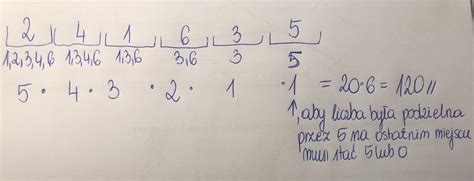 2 4 1 6 3 5
1,2,3,4,6 1,3,4,6 1,3,6 3,6 3 5
5 · 4 · 3 · 2 · 1 · 1 = 20·6 = 120//
↑, aby liczba była podzielna
przez 5 na ostatnim miejscu
musi stać 5 lub 0